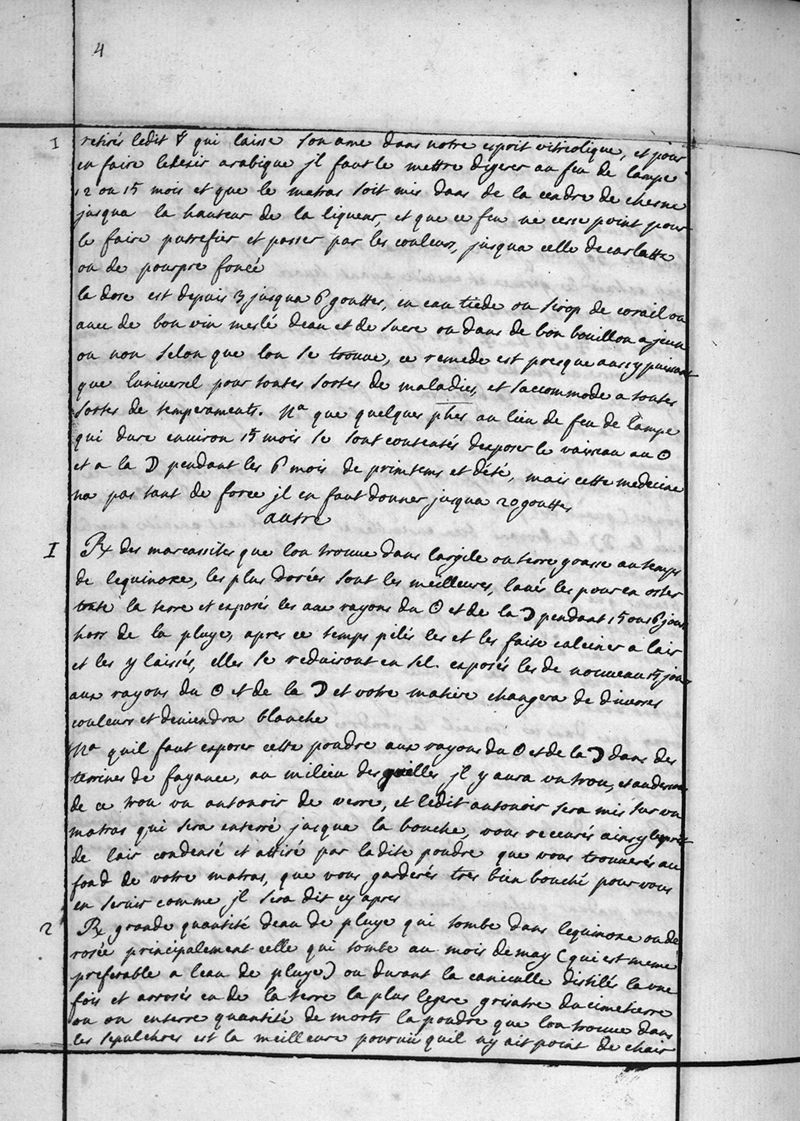 4
1 retirés ledit qui laisse son ame dans notre esprit vitriolique, et pour
en faire lelixir arabique jl faut le mettre digerer au feu de lampe
12 ou 15 mois et que le matras soit mis dans de la cendre de chesne
jusqua la hauteur de la liqueur, et que ce feu ne cesse point pour
le faire putrefier et passer par les couleurs, jusqua celle decarlatte
ou de pourpre foncé
la dose est depuis 3 jusqua 6 gouttes, en eau tiede ou sirop de corail ou
auec de bon vin meslé deau et de sucre ou dans de bon bouillon a jeun
ou non selon que lon se trouve, ce remede est presque aussy puissant
que luniversel pour toutes sortes de maladies, et saccommode a toutes
sortes de temperaments. Na que quelques phes au lieu de feu de lampe
qui dure environ 15 mois se sont contentés dexposer le vaisseau au ☉
et a la ☽ pendant les 6 mois de printems et dété, mais cette medecine
na pas tant de force jl en faut donner jusqua 20 gouttes
autre
1 ℞ des marcassites que lon trouve dans largile ou terre grasse au temps
de lequinoxe, les plus dorées sont les meilleures, laués les pour en oster
toute la terre et exposés les aux rayons du ☉ et de la ☽ pendant 15 ou 16 jours
hors de la pluye, apres ce temps pilés les et les faite calciner a lair
et les y laissés, elles se reduiront en sel. exposés les de nouveau 15 jours
aux rayons du ☉ et de la ☽ et votre matiere changera de diuerses
couleurs et deuiendra blanche
Na quil faut exposer cette poudre aux rayons du ☉ et de la ☽ dans des
terrines de fayance, au milieu desquelles jl y aura un trou, et au dessous
de ce trou un antonoir de verre, et ledit antonoir sera mis sur un
matras qui sera enterré jusqua la bouche, vous receurés ainsy lesprit
de lair condensé et attiré par ladite poudre que vous trouuerés au
fond de votre matras, que vous garderés tres bien bouché pour vous
en seruir comme jl sera dit cy apres
2 ℞ grande quantité deau de pluye qui tombe dans lequinoxe ou de
rosée principalement celle qui tombe au mois de may (qui est meme
preferable a leau de pluye) ou durant la caniculle distilé la une
fois et arrosés en de la terre la plus legere grisatre du cimetierre
ou on enterre quantité de morts la poudre que lon trouue dans
les sepulchres est la meilleure pourvû quil ny ait point de chair